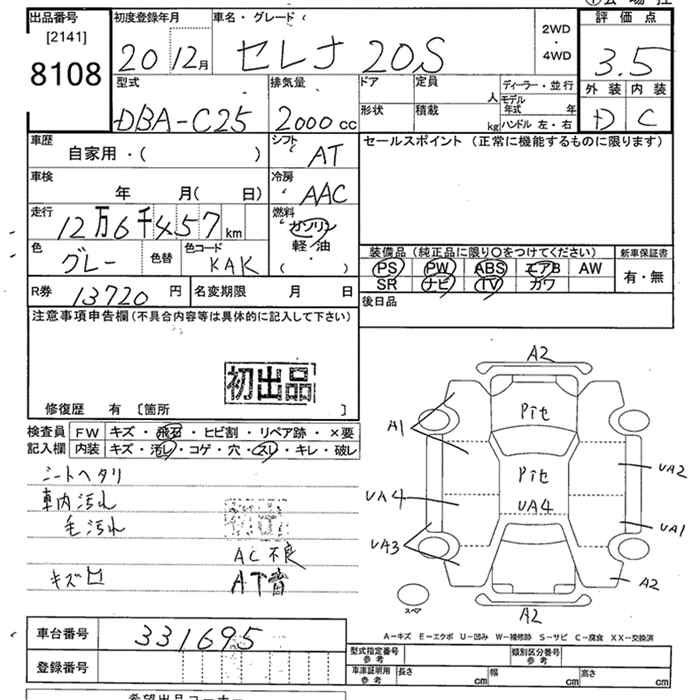 出品番号 初度登録年月 車名・グレード 2WD 評価点
[2141] 20 12月 セレナ 20S ・ 3.5
8108 4WD
型式 排気量 ドア 定員 人 ディーラー・並行 外装 内装
DBA-C25 2000cc 形状 積載 kg モデル年式 年 D C
ハンドル 左・右
車歴 シフト セールスポイント (正常に機能するものに限ります)
自家用・( ) AT
車検 冷房
年 月( 日) AAC
走行 燃料
12万6千457km ガソリン
色 色替 色コード 軽・油
グレー KAK ( )
装備品 (純正品に限り○をつけてください) 新車保証書
PS PW ABS エアB AW 有・無
SR ナビ TV カワ
R券 13720円 名変期限 月 日 後日品
注意事項申告欄 (不具合内容等は具体的に記入して下さい)
初出品
修復歴 有 [箇所 ]
検査員 FW キズ・飛石・ヒビ割・リペア跡・×要
記入欄 内装 キズ・汚レ・コゲ・穴・スレ・キレ・破レ
シートヘタリ
車内汚れ
毛汚れ
AC不良
キズ AT音
A2
A1 Pit
Pit UA2
UA4 UA4
UA1
UA3
A2
スペア A2
A-キズ E-エクボ U-凹み W-補修跡 S-サビ C-腐食 XX-交換済
車台番号 331695
型式指定番号 参考 類別区分番号 参考
登録番号
車庫証明用 参考 長さ cm 幅 cm 高さ cm
希望出品コーナー